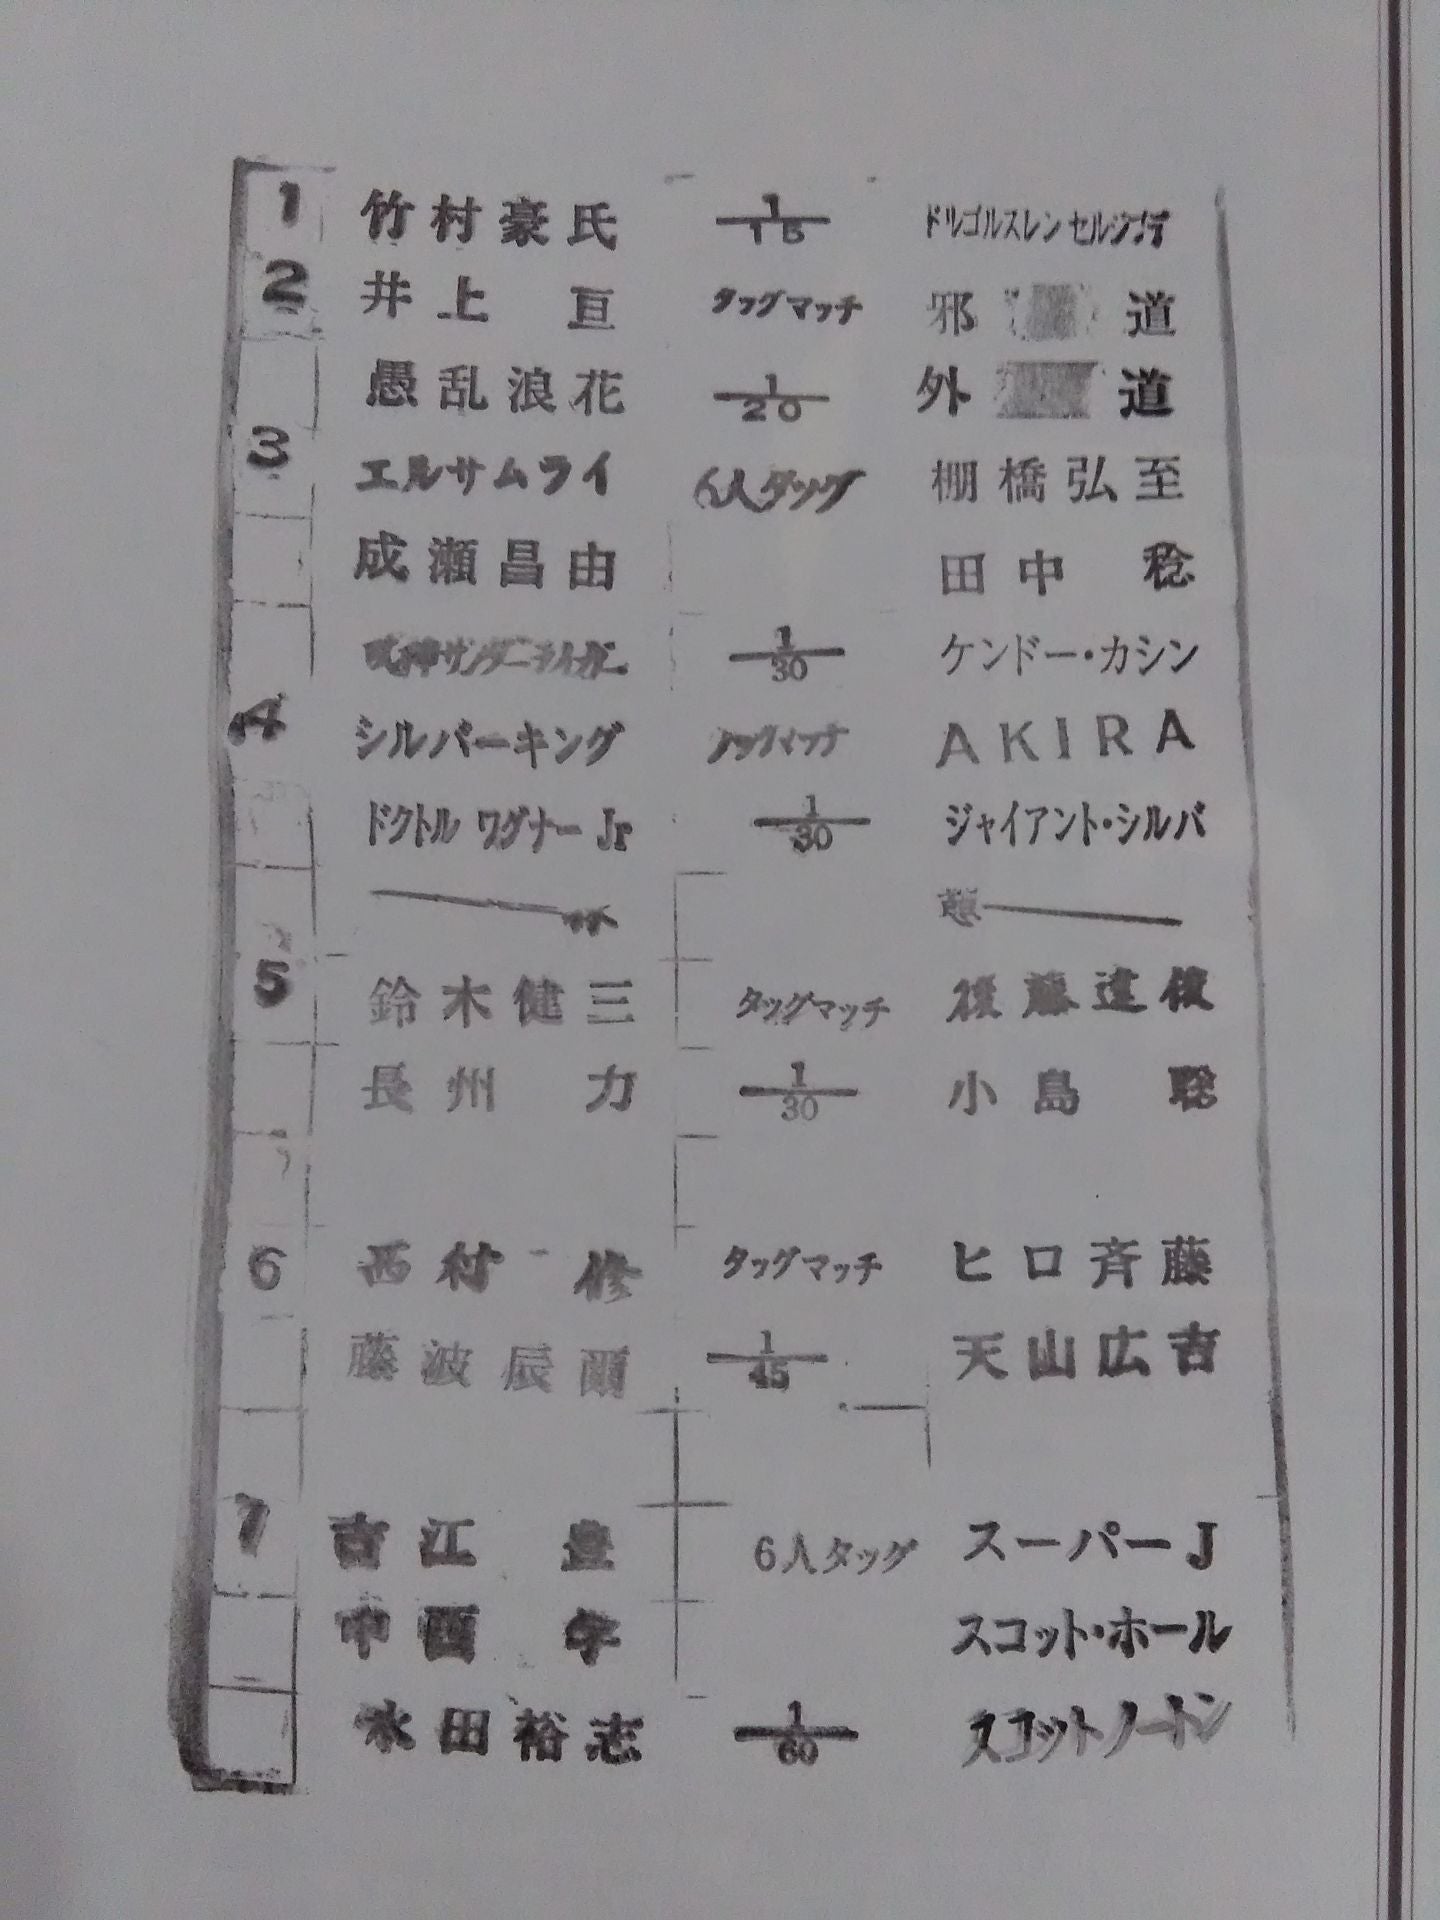 1 竹村豪氏 1/15 ドルゴルスレン セルジブデ
2 井上 亘 タッグマッチ 邪 道
愚乱浪花 1/20 外 道
3 エルサムライ 6人タッグ 棚橋弘至
成瀬昌由 田中 稔
獣神サンダーライガー 1/30 ケンドー・カシン
4 シルバーキング タッグマッチ AKIRA
ドクトル ワグナー Jr 1/30 ジャイアント・シルバ
休 憩
5 鈴木健三 タッグマッチ 後藤達俊
長州 力 1/30 小島 聡
6 西村 修 タッグマッチ ヒロ斉藤
藤波辰爾 1/45 天山広吉
7 吉江 豊 6人タッグ スーパーJ
中西 学 スコット・ホール
永田裕志 1/60 スコットノートン